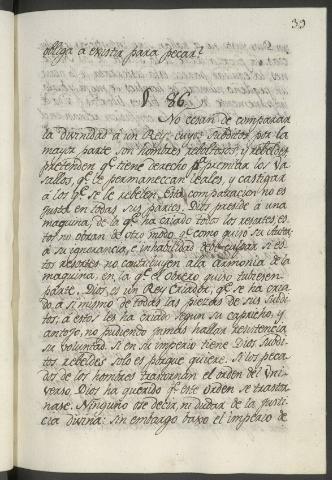 39
obliga à existir para pecar?
§. 86.
No cesan de comparar
la divinidad à un Rey, cuyos subditos por la
mayor parte son hombres rebeldes
pretenden q.e tiene derecho premiar los va-
sallos, q.e le permanezcan leales, y castigar
à los q.e se le rebelen, esta comparacion no es
justa en todas sus partes. Dios preside à una
maquina, de la q.e ha criado todos los resortes, es-
tos no obran de otro modo q.e como quiso su Autor,
à su ignorancia, è inhabilidad debe culpar si es-
tos resortes no contribuyen à la armonia de la
maquina, en la q.e el obrero quiso tubiesen
parte. Dios, es un Rey Criador, q.e se ha cria-
do, à si mismo de todas las piezas de sus subdi-
tos, à estos les ha criado segun su capricho, y
antojo, no pudiendo jamás hallar resistencia
su voluntad. Si en su imperio tiene Dios subdi-
tos rebeldes solo es porque quiere. Si los peca-
dos de los hombres trastornan el orden del Uni-
verso, Dios ha querido q.e este orden se trastor-
nase. Ninguno ose decir, ni dudar de la justi-
cia divina: sin embargo baxo el imperio de